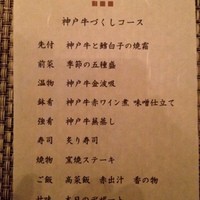 神戸牛づくしコース
先付 神戸牛と鱈白子の焼霜
前菜 季節の五種盛
温物 神戸牛金波吸
鉢肴 神戸牛赤ワイン煮 味噌仕立て
強肴 神戸牛蒸蒸し
寿司 炙り寿司
焼物 窯焼ステーキ
ご飯 高菜飯 赤出汁 香の物
甘味 本日のデザート